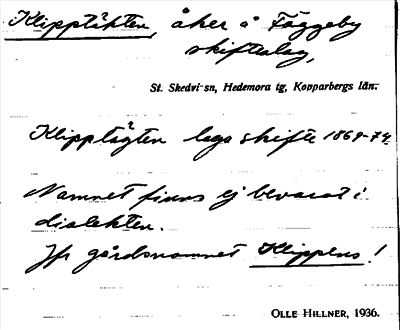 Klipptäkten, åker å Fäggeby
skiftalag,
St. Skedvi sn, Hedemora tg, Kopparbergs län.
Klipptägten laga skifte 1869-74
Namnet finns ej bevarat i
dialekten.
Jfr gårdsnamnet Klippens!
OLLE HILLNER, 1936.